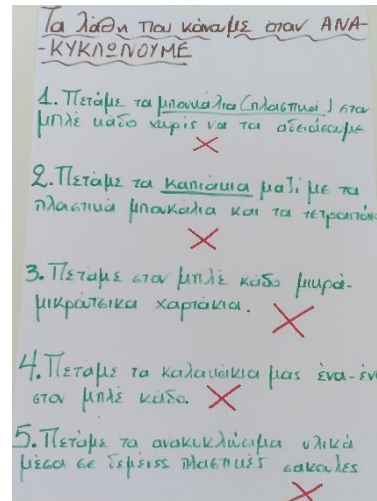 Τα λάθη που κάναμε όταν ΑΝΑ-
-ΚΥΚΛΩΝΟΥΜΕ
1. Πετάμε τα μπουκάλια (πλαστικά) στον
μπλέ κάδο χωρίς να τα αδειάσουμε
2. Πετάμε τα καπάκια μαζί με τα
πλαστικά μπουκάλια και τα τετραπάκ
3. Πετάμε στον μπλέ κάδο μικρά-
μικράτσικα χαρτάκια.
4. Πετάμε τα καλαμάκια μας ένα-ένα
στον μπλέ κάδο.
5. Πετάμε τα ανακυκλώσιμα υλικά
μέσα σε δεμένες πλαστικές σακούλες